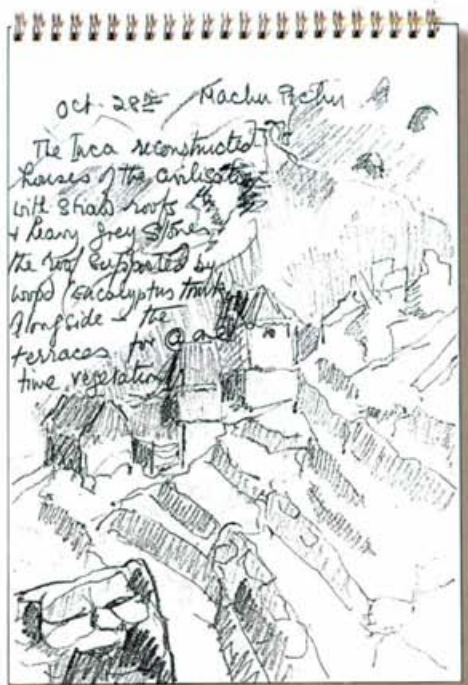 Oct. 28th Machu Pichu
The Inca reconstructed
houses of the civilisation
with straw roofs
& heavy grey stones
the roof supported by
wood Eucalyptus trunks
alongside – the
terraces for @ one
time vegetation